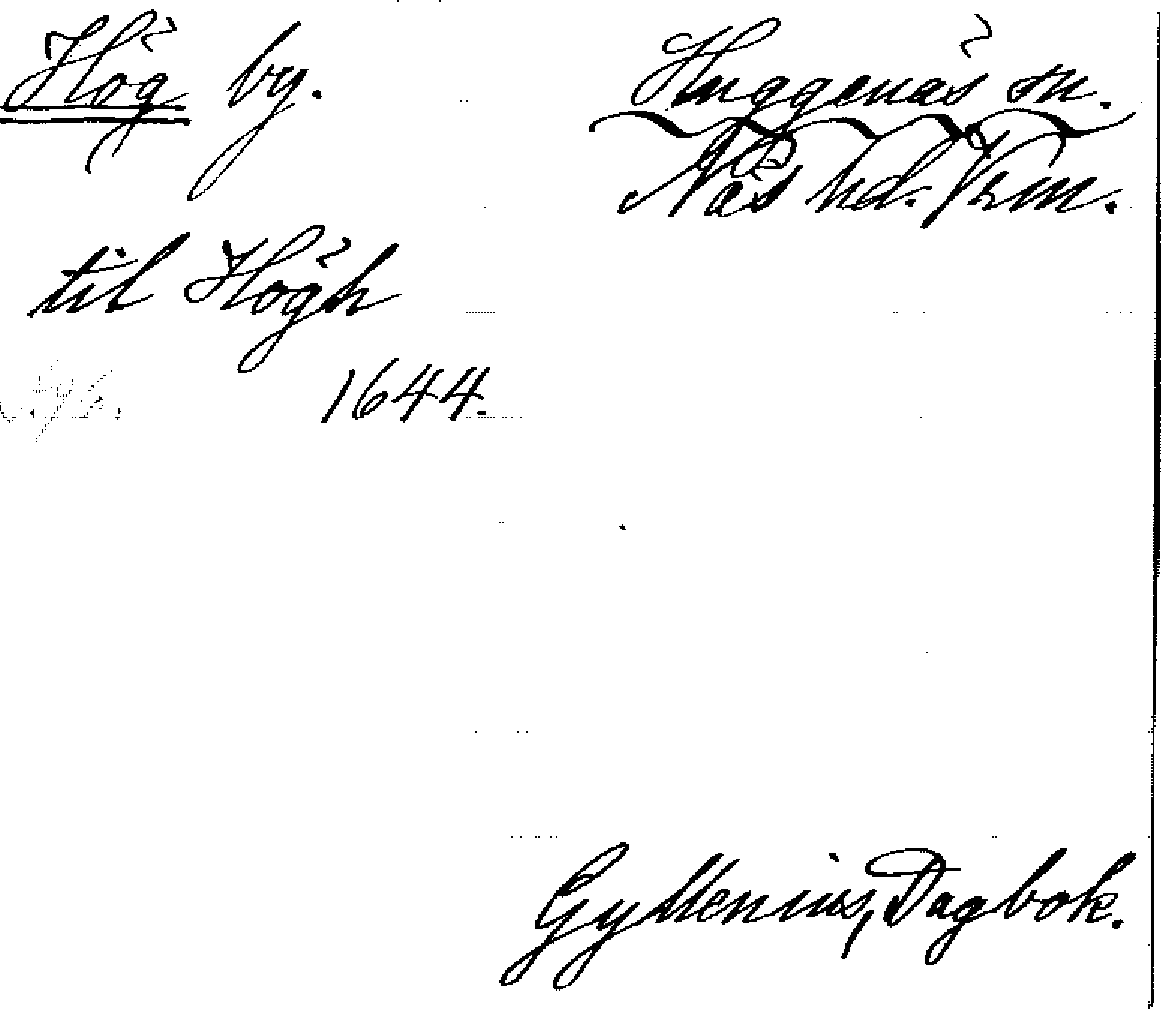 Hög by.
Huggenäs sn.
Näs hd. Vrm.
til Högh
1644.
Gyllenius, Dagbok.